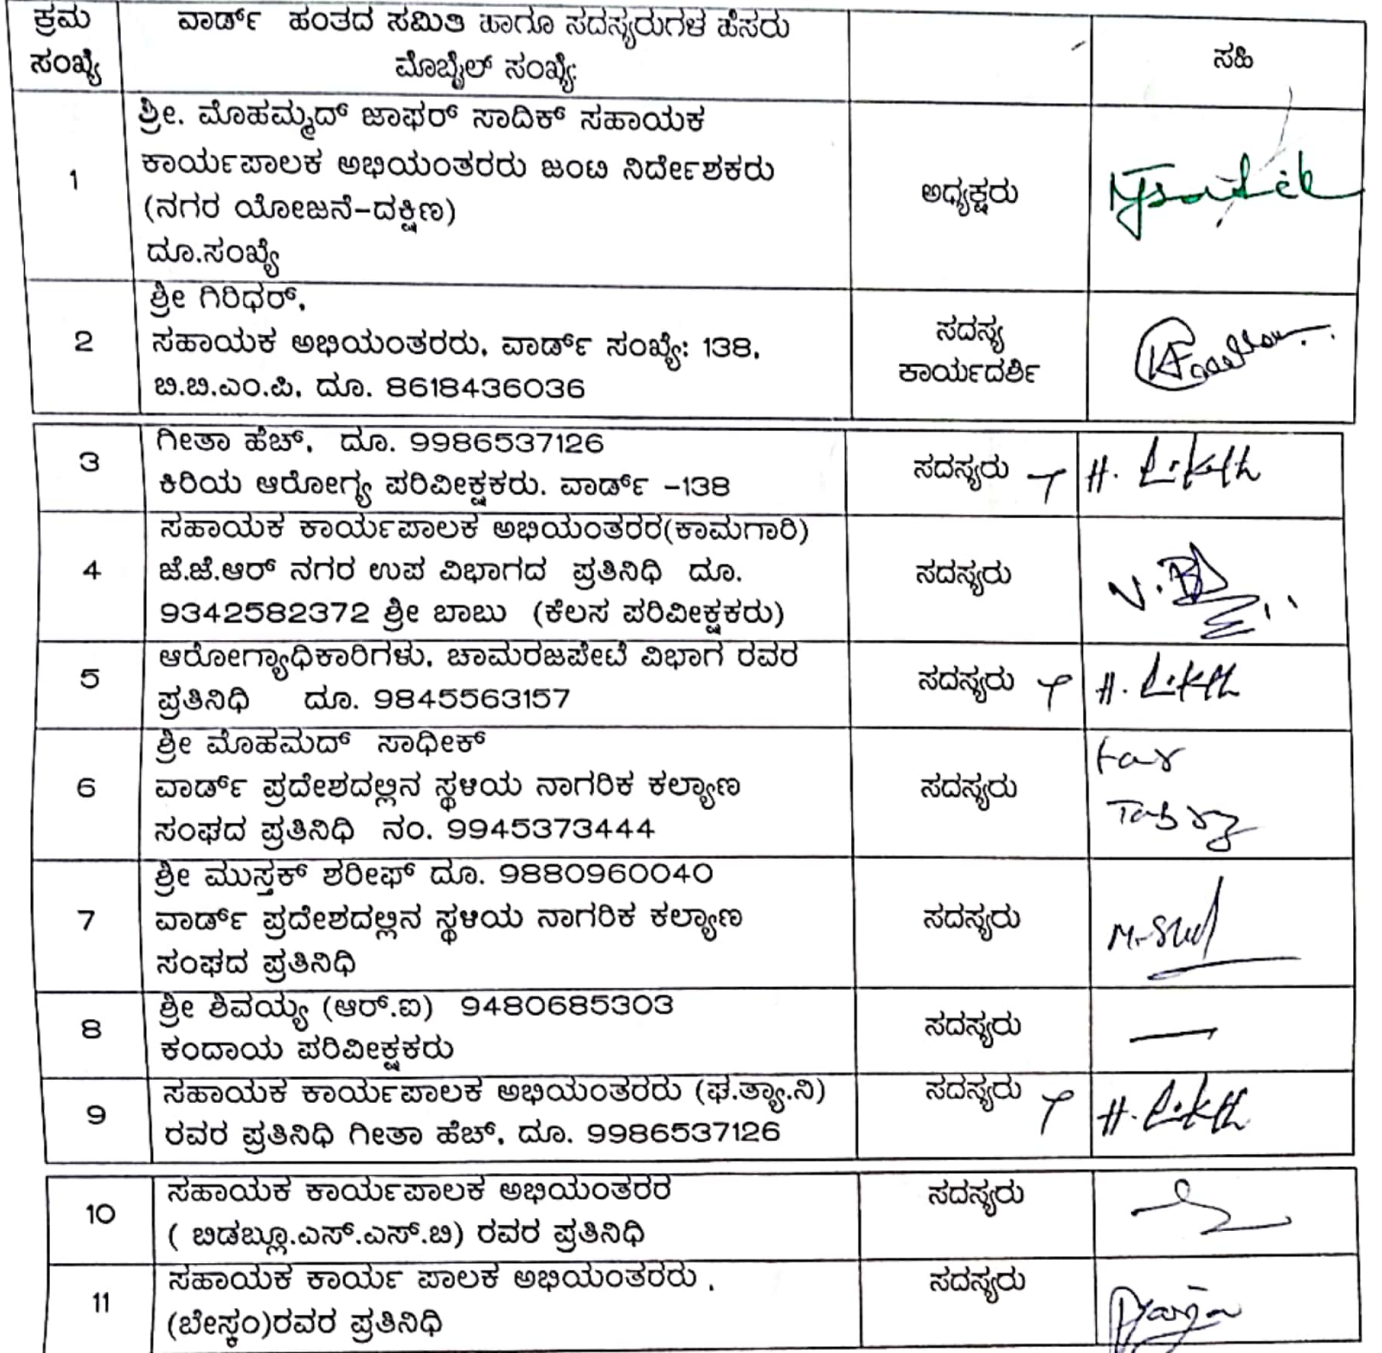 ಕ್ರಮ ಸಂಖ್ಯೆ
ವಾರ್ಡ್ ಹಂತದ ಸಮಿತಿ ಹಾಗೂ ಸದಸ್ಯರುಗಳ ಹೆಸರು
ಮೊಬೈಲ್ ಸಂಖ್ಯೆ:
ಸಹಿ
1
ಶ್ರೀ. ಮೊಹಮ್ಮದ್ ಜಾಫರ್ ಸಾದಿಕ್ ಸಹಾಯಕ
ಕಾರ್ಯಪಾಲಕ ಅಭಿಯಂತರರು ಜಂಟಿ ನಿರ್ದೇಶಕರು
(ನಗರ ಯೋಜನೆ-ದಕ್ಷಿಣ)
ದೂ.ಸಂಖ್ಯೆ
ಅಧ್ಯಕ್ಷರು
2
ಶ್ರೀ ಗಿರಿಧರ್,
ಸಹಾಯಕ ಅಭಿಯಂತರರು, ವಾರ್ಡ್ ಸಂಖ್ಯೆ: 138,
ಬಿ.ಬಿ.ಎಂ.ಪಿ, ದೂ. 8618436036
ಸದಸ್ಯ
ಕಾರ್ಯದರ್ಶಿ
3
ಗೀತಾ ಹೆಚ್, ದೂ. 9986537126
ಕಿರಿಯ ಆರೋಗ್ಯ ಪರಿವೀಕ್ಷಕರು. ವಾರ್ಡ್ -138
ಸದಸ್ಯರು
4
ಸಹಾಯಕ ಕಾರ್ಯಪಾಲಕ ಅಭಿಯಂತರರ(ಕಾಮಗಾರಿ)
ಜೆ.ಜೆ.ಆರ್ ನಗರ ಉಪ ವಿಭಾಗದ ಪ್ರತಿನಿಧಿ ದೂ.
9342582372 ಶ್ರೀ ಬಾಬು (ಕೆಲಸ ಪರಿವೀಕ್ಷಕರು)
ಸದಸ್ಯರು
5
ಆರೋಗ್ಯಾಧಿಕಾರಿಗಳು, ಚಾಮರಜಪೇಟೆ ವಿಭಾಗ ರವರ
ಪ್ರತಿನಿಧಿ ದೂ. 9845563157
ಸದಸ್ಯರು
6
ಶ್ರೀ ಮೊಹಮದ್ ಸಾಧೀಕ್
ವಾರ್ಡ್ ಪ್ರದೇಶದಲ್ಲಿನ ಸ್ಥಳಿಯ ನಾಗರಿಕ ಕಲ್ಯಾಣ
ಸಂಘದ ಪ್ರತಿನಿಧಿ ನಂ. 9945373444
ಸದಸ್ಯರು
7
ಶ್ರೀ ಮುಸ್ತಕ್ ಶರೀಫ್ ದೂ. 9880960040
ವಾರ್ಡ್ ಪ್ರದೇಶದಲ್ಲಿನ ಸ್ಥಳಿಯ ನಾಗರಿಕ ಕಲ್ಯಾಣ
ಸಂಘದ ಪ್ರತಿನಿಧಿ
ಸದಸ್ಯರು
8
ಶ್ರೀ ಶಿವಯ್ಯ (ಆರ್.ಐ) 9480685303
ಕಂದಾಯ ಪರಿವೀಕ್ಷಕರು
ಸದಸ್ಯರು
9
ಸಹಾಯಕ ಕಾರ್ಯಪಾಲಕ ಅಭಿಯಂತರರು (ಘ.ತ್ಯಾ.ನಿ)
ರವರ ಪ್ರತಿನಿಧಿ ಗೀತಾ ಹೆಚ್, ದೂ. 9986537126
ಸದಸ್ಯರು
10
ಸಹಾಯಕ ಕಾರ್ಯಪಾಲಕ ಅಭಿಯಂತರರ
( ಬಿಡಬ್ಲೂ.ಎಸ್.ಎಸ್.ಬಿ) ರವರ ಪ್ರತಿನಿಧಿ
ಸದಸ್ಯರು
11
ಸಹಾಯಕ ಕಾರ್ಯ ಪಾಲಕ ಅಭಿಯಂತರರು ,
(ಬೇಸ್ಕಂ)ರವರ ಪ್ರತಿನಿಧಿ
ಸದಸ್ಯರು